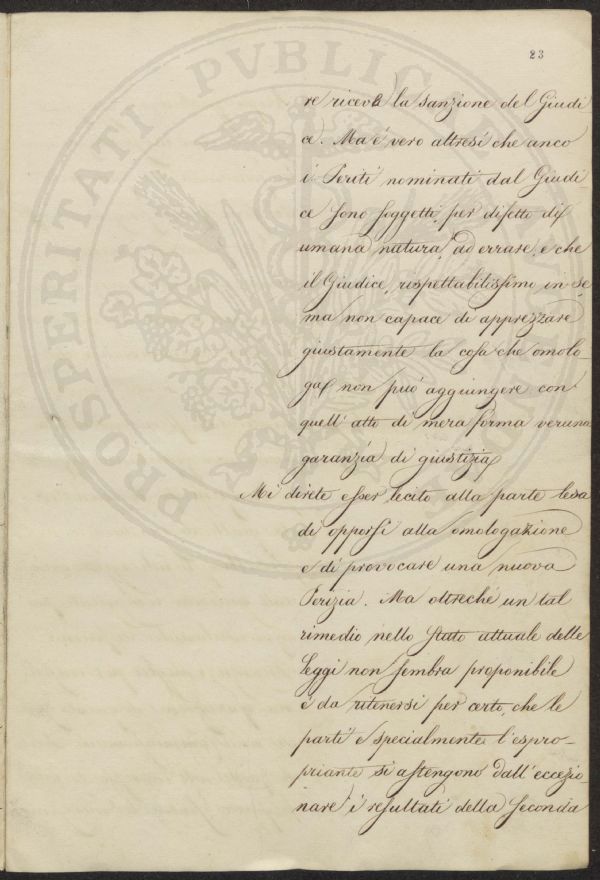 23
PROSPERITATI PVBLICAE
re riceve la sanzione del Giudi
ce. Ma è vero altresì che anco
i Periti nominati dal Giudi
ce sono soggetti, per difetto di
umana natura, ad errare, e che
il Giudice, rispettabilissimo in se,
ma non capace di apprezzare
giustamente la cosa che omolo-
ga, non può aggiungere con
quell'atto di mera forma veruna
garanzia di giustizia
Mi direte esser lecito alla parte lesa
di opporsi alla omologazione
e di provocare una nuova
Perizia. Ma oltreché un tal
rimedio nello stato attuale delle
Leggi non sembra proponibile
è da ritenersi per certo, che le
parti e specialmente l'espro-
priante si astengono dall'eccezio
nare i resultati della seconda